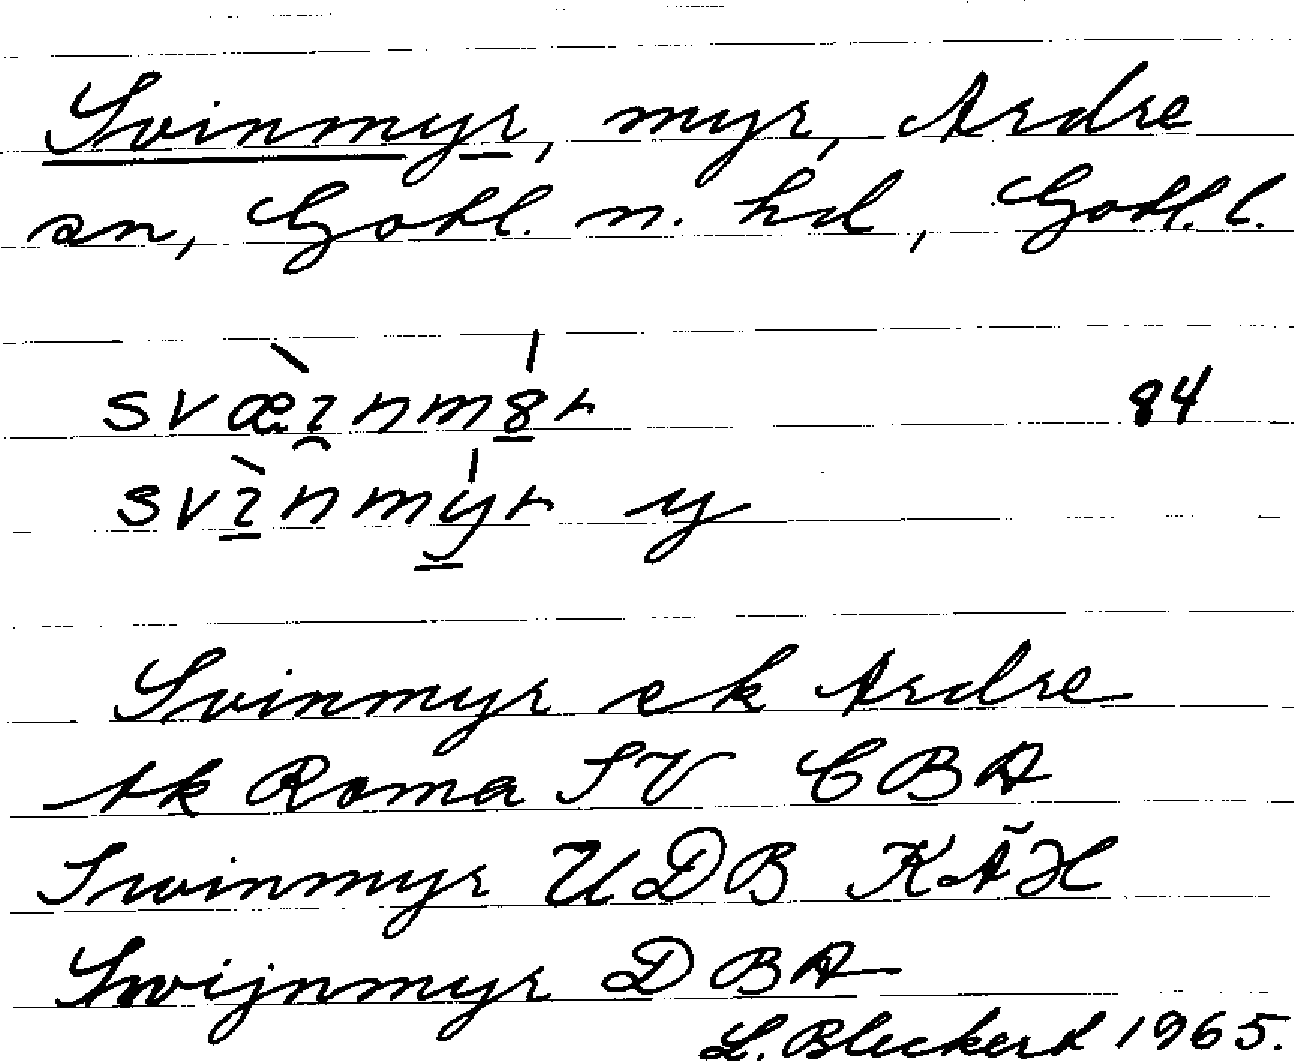 Svinmyr, myr, Ardre
sn, Gotl. n. hd, Gotl. l.
svæ̀ınmȣ́r 84
svı̀nmýr y
Svinmyr ek Ardre
tk Roma SV CBA
Swinmyr UDB KÄH
Swijnmyr DBA
L. Bleckert 1965.